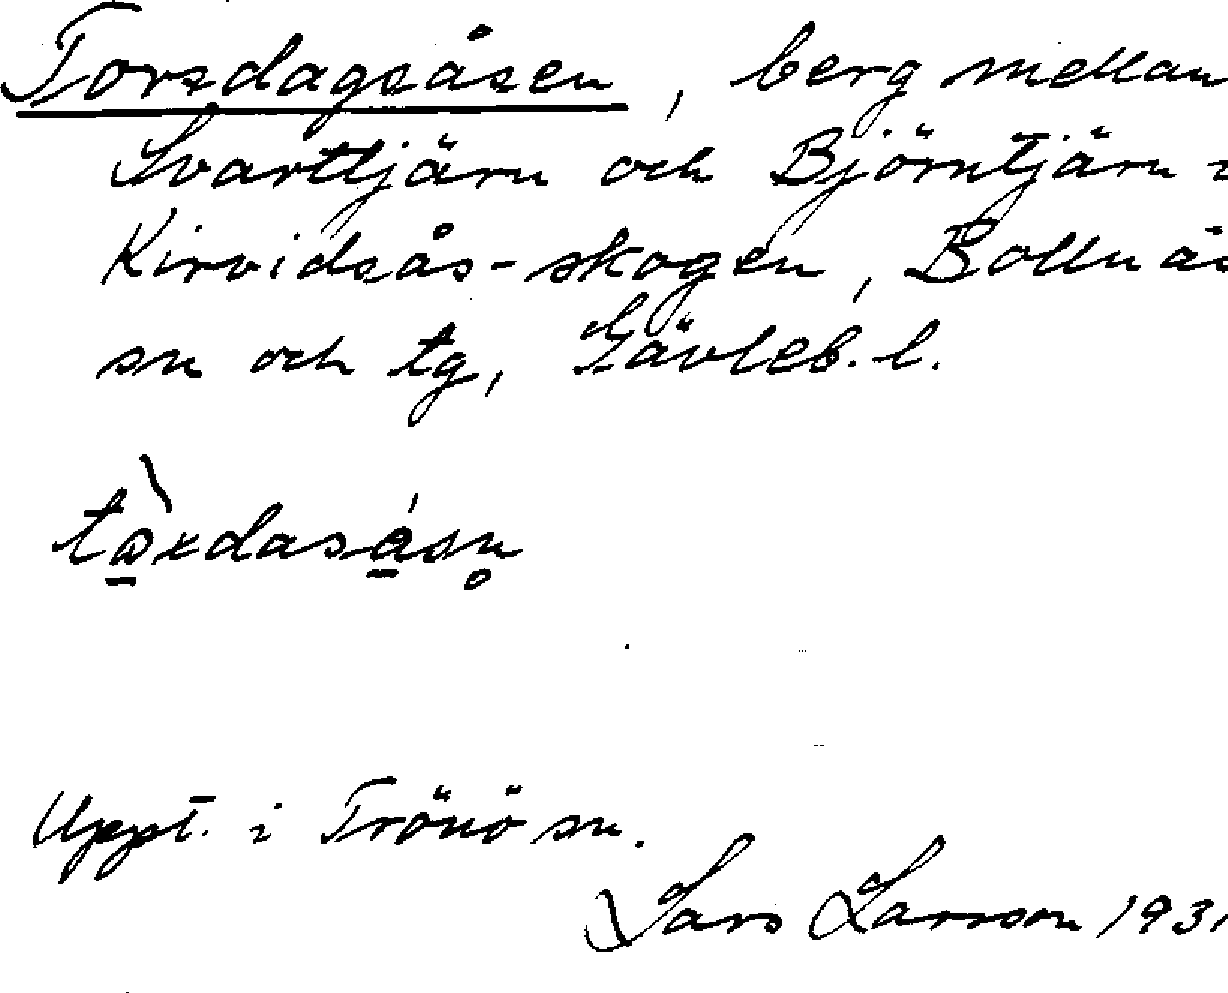 Torsdagsåsen, berg mellan
Svarttjärn och Björntjärn i
Kirvidsås-skogen, Bollnäs
sn och tg, Gävleb. l.
Uppt. i Trönö sn.
Lars Larsson 1931